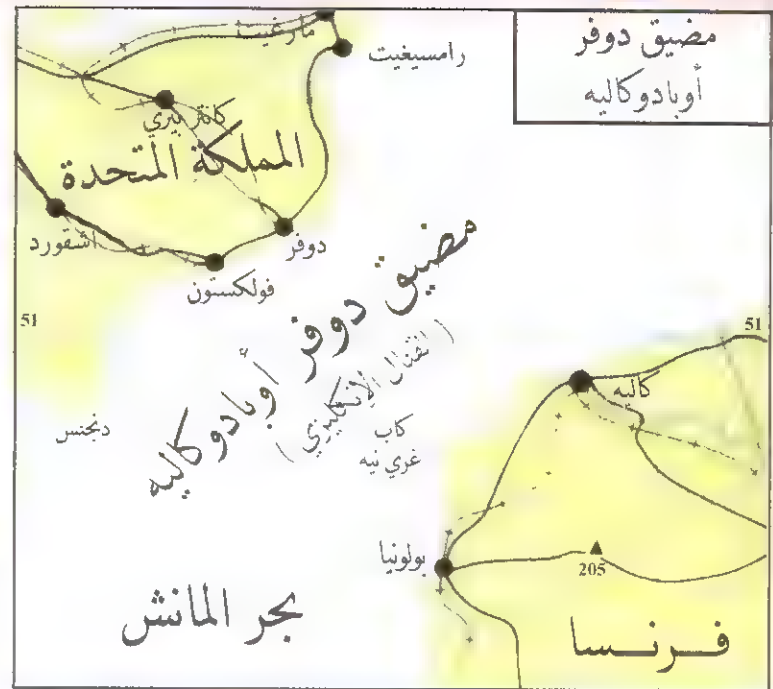 مضيق دوفر
أوبادوكاليه
مارغيت
رامسيغيت
كانتربيري
المملكة المتحدة
اشفورد
دوفر
فولكستون
مضيق دوفر أوبادوكاليه
( القنال الإنكليزي )
51
51
كاليه
دنجنس
كاب
غري نيه
بولونيا
205
بحر المانش
فرنسا